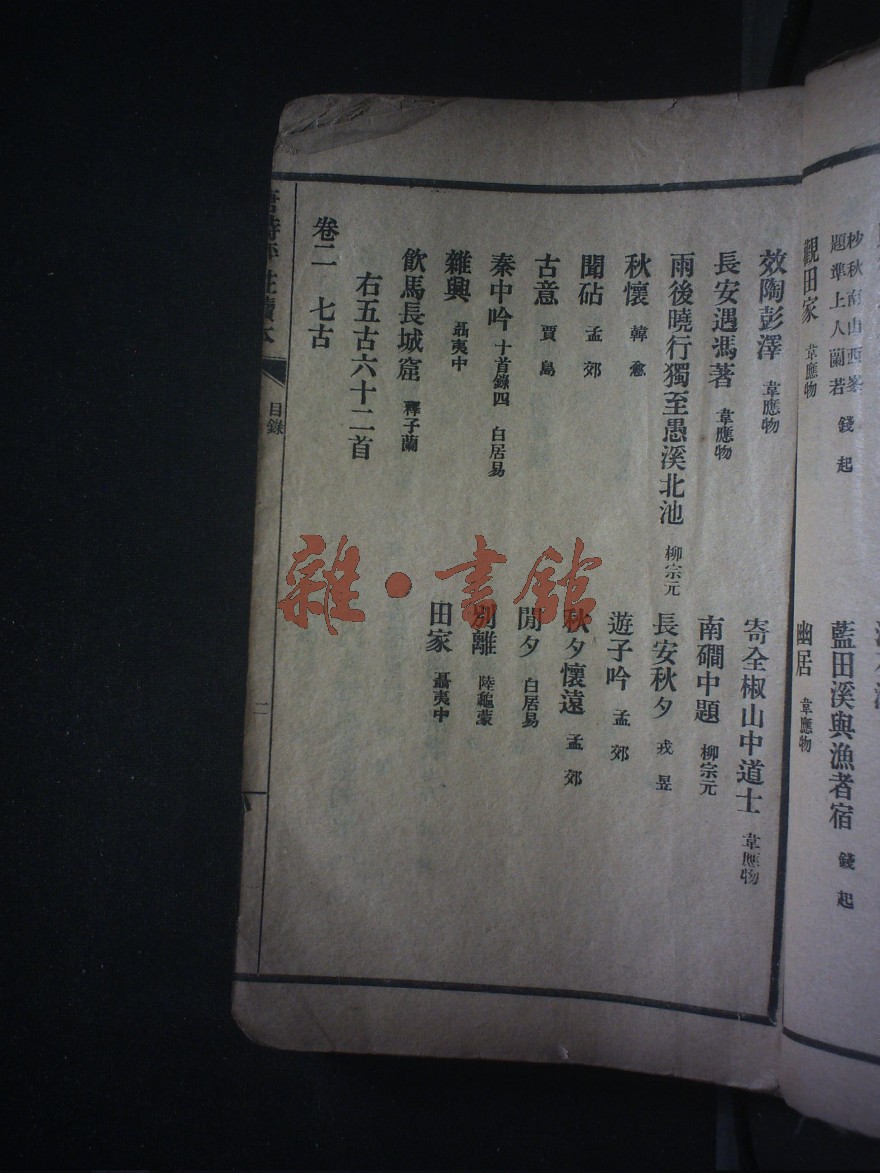 杪秋南山西峯
題準上人蘭若 錢起
藍田溪與漁者宿 錢起
觀田家 韋應物
幽居 韋應物
效陶彭澤 韋應物
寄全椒山中道士 韋應物
長安遇馮著 韋應物
南磵中題 柳宗元
雨後曉行獨至愚溪北池 柳宗元
長安秋夕 戎昱
秋懷 韓愈
遊子吟 孟郊
聞砧 孟郊
秋夕懷遠 孟郊
古意 賈島
閒夕 白居易
秦中吟 十首錄四 白居易
別離 陸龜蒙
雜興 聶夷中
田家 聶夷中
飲馬長城窟 釋子蘭
右五古六十二首
卷二 七古
目錄
二
雜·書館